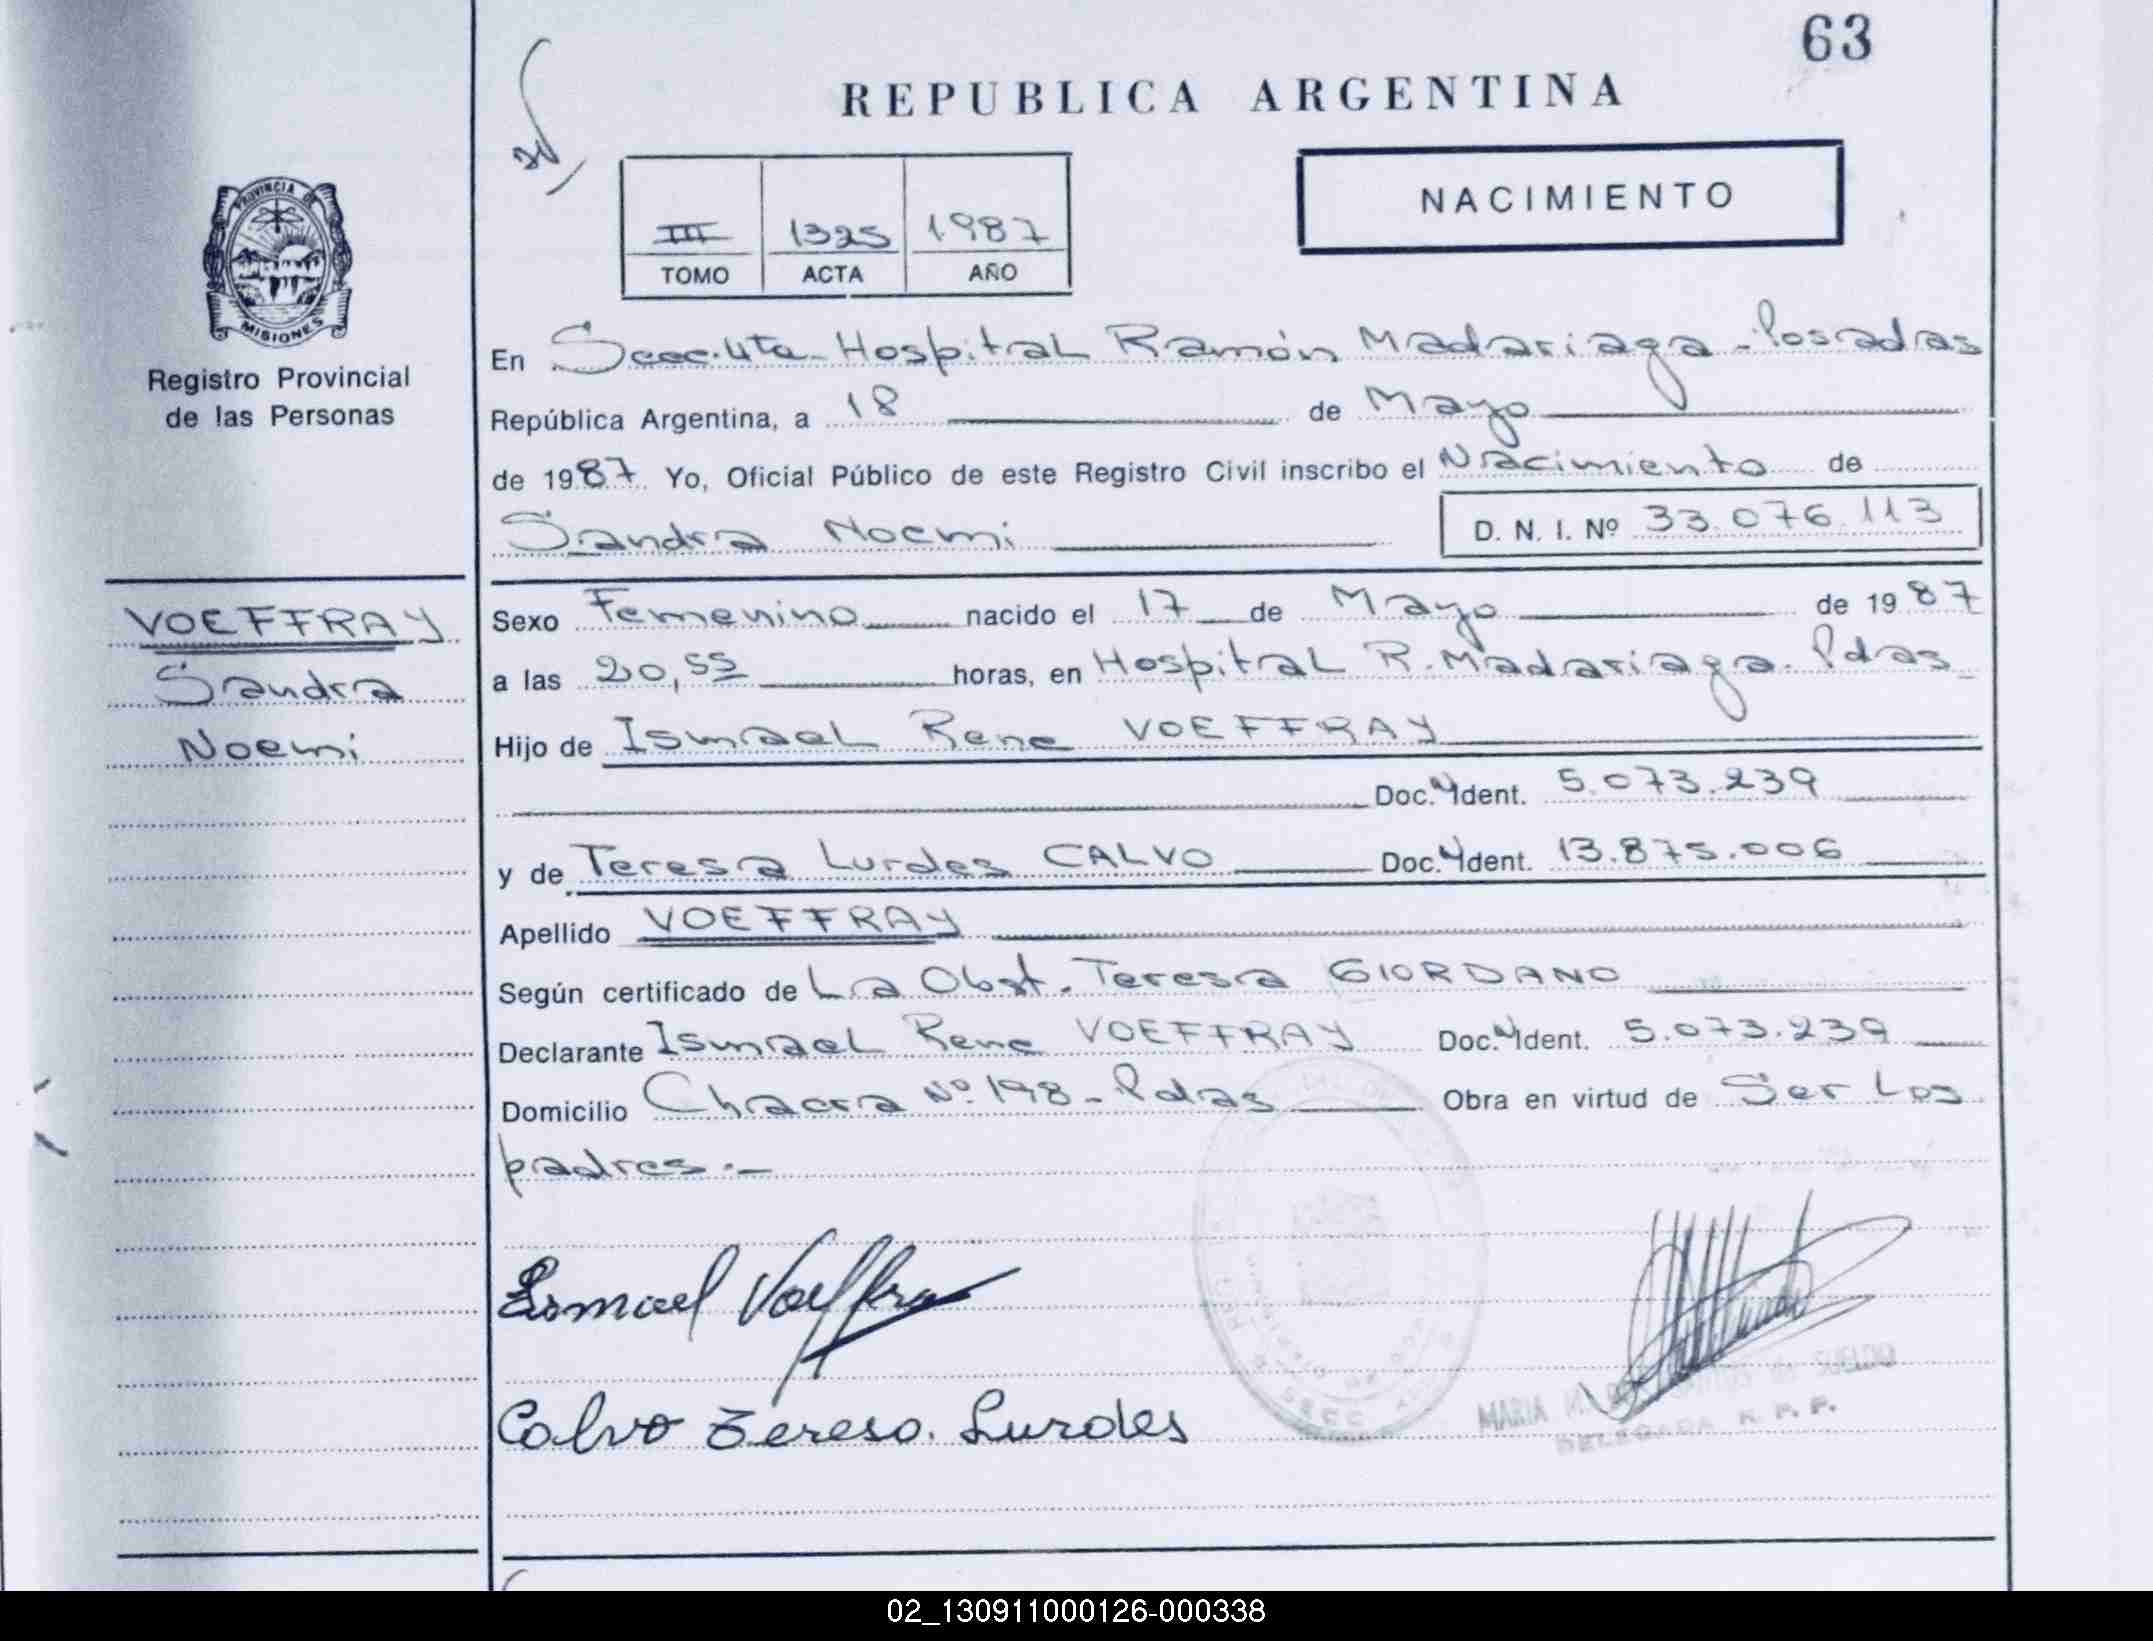 63
REPUBLICA ARGENTINA
NACIMIENTO
III 1325 1987
TOMO ACTA AÑO
PROVINCIA DE
MISIONES
Registro Provincial
de las Personas
En Secc. 4ta - Hospital Ramón Madariaga - Posadas
República Argentina, a 18 de Mayo
de 1987. Yo, Oficial Público de este Registro Civil inscribo el Nacimiento de
Sandra Noemi D. N. I. Nº 33.076.113
VOEFFRAY
Sandra
Noemi
Sexo Femenino nacido el 17 de Mayo de 1987
a las 20,55 horas, en Hospital R. Madariaga. Pdas
Hijo de Ismael Rene VOEFFRAY
Doc. Ident. 5.073.239
y de Teresa Lurdes CALVO Doc. Ident. 13.875.006
Apellido VOEFFRAY
Según certificado de La Obst. Teresa GIORDANO
Declarante Ismael Rene VOEFFRAY Doc. Ident. 5.073.239
Domicilio Chacra Nº 198 - Pdas Obra en virtud de Ser Los
padres.-
Ismael Voeffray
Calvo Teresa. Lurdes
MARIA de SUELDO
DELEGADA R. P. P.
02_130911000126-000338